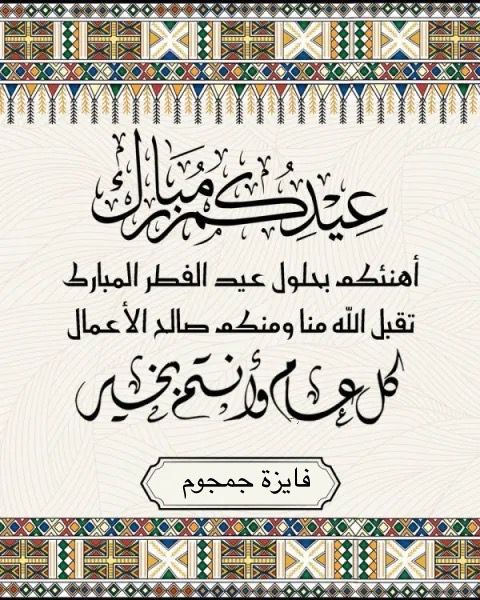 عِيدُكُم مُبَارَك
أهنئكم بحلول عيد الفطر المبارك
تقبل الله منا ومنكم صالح الأعمال
كل عام وأنتم بخير
فايزة جمجوم